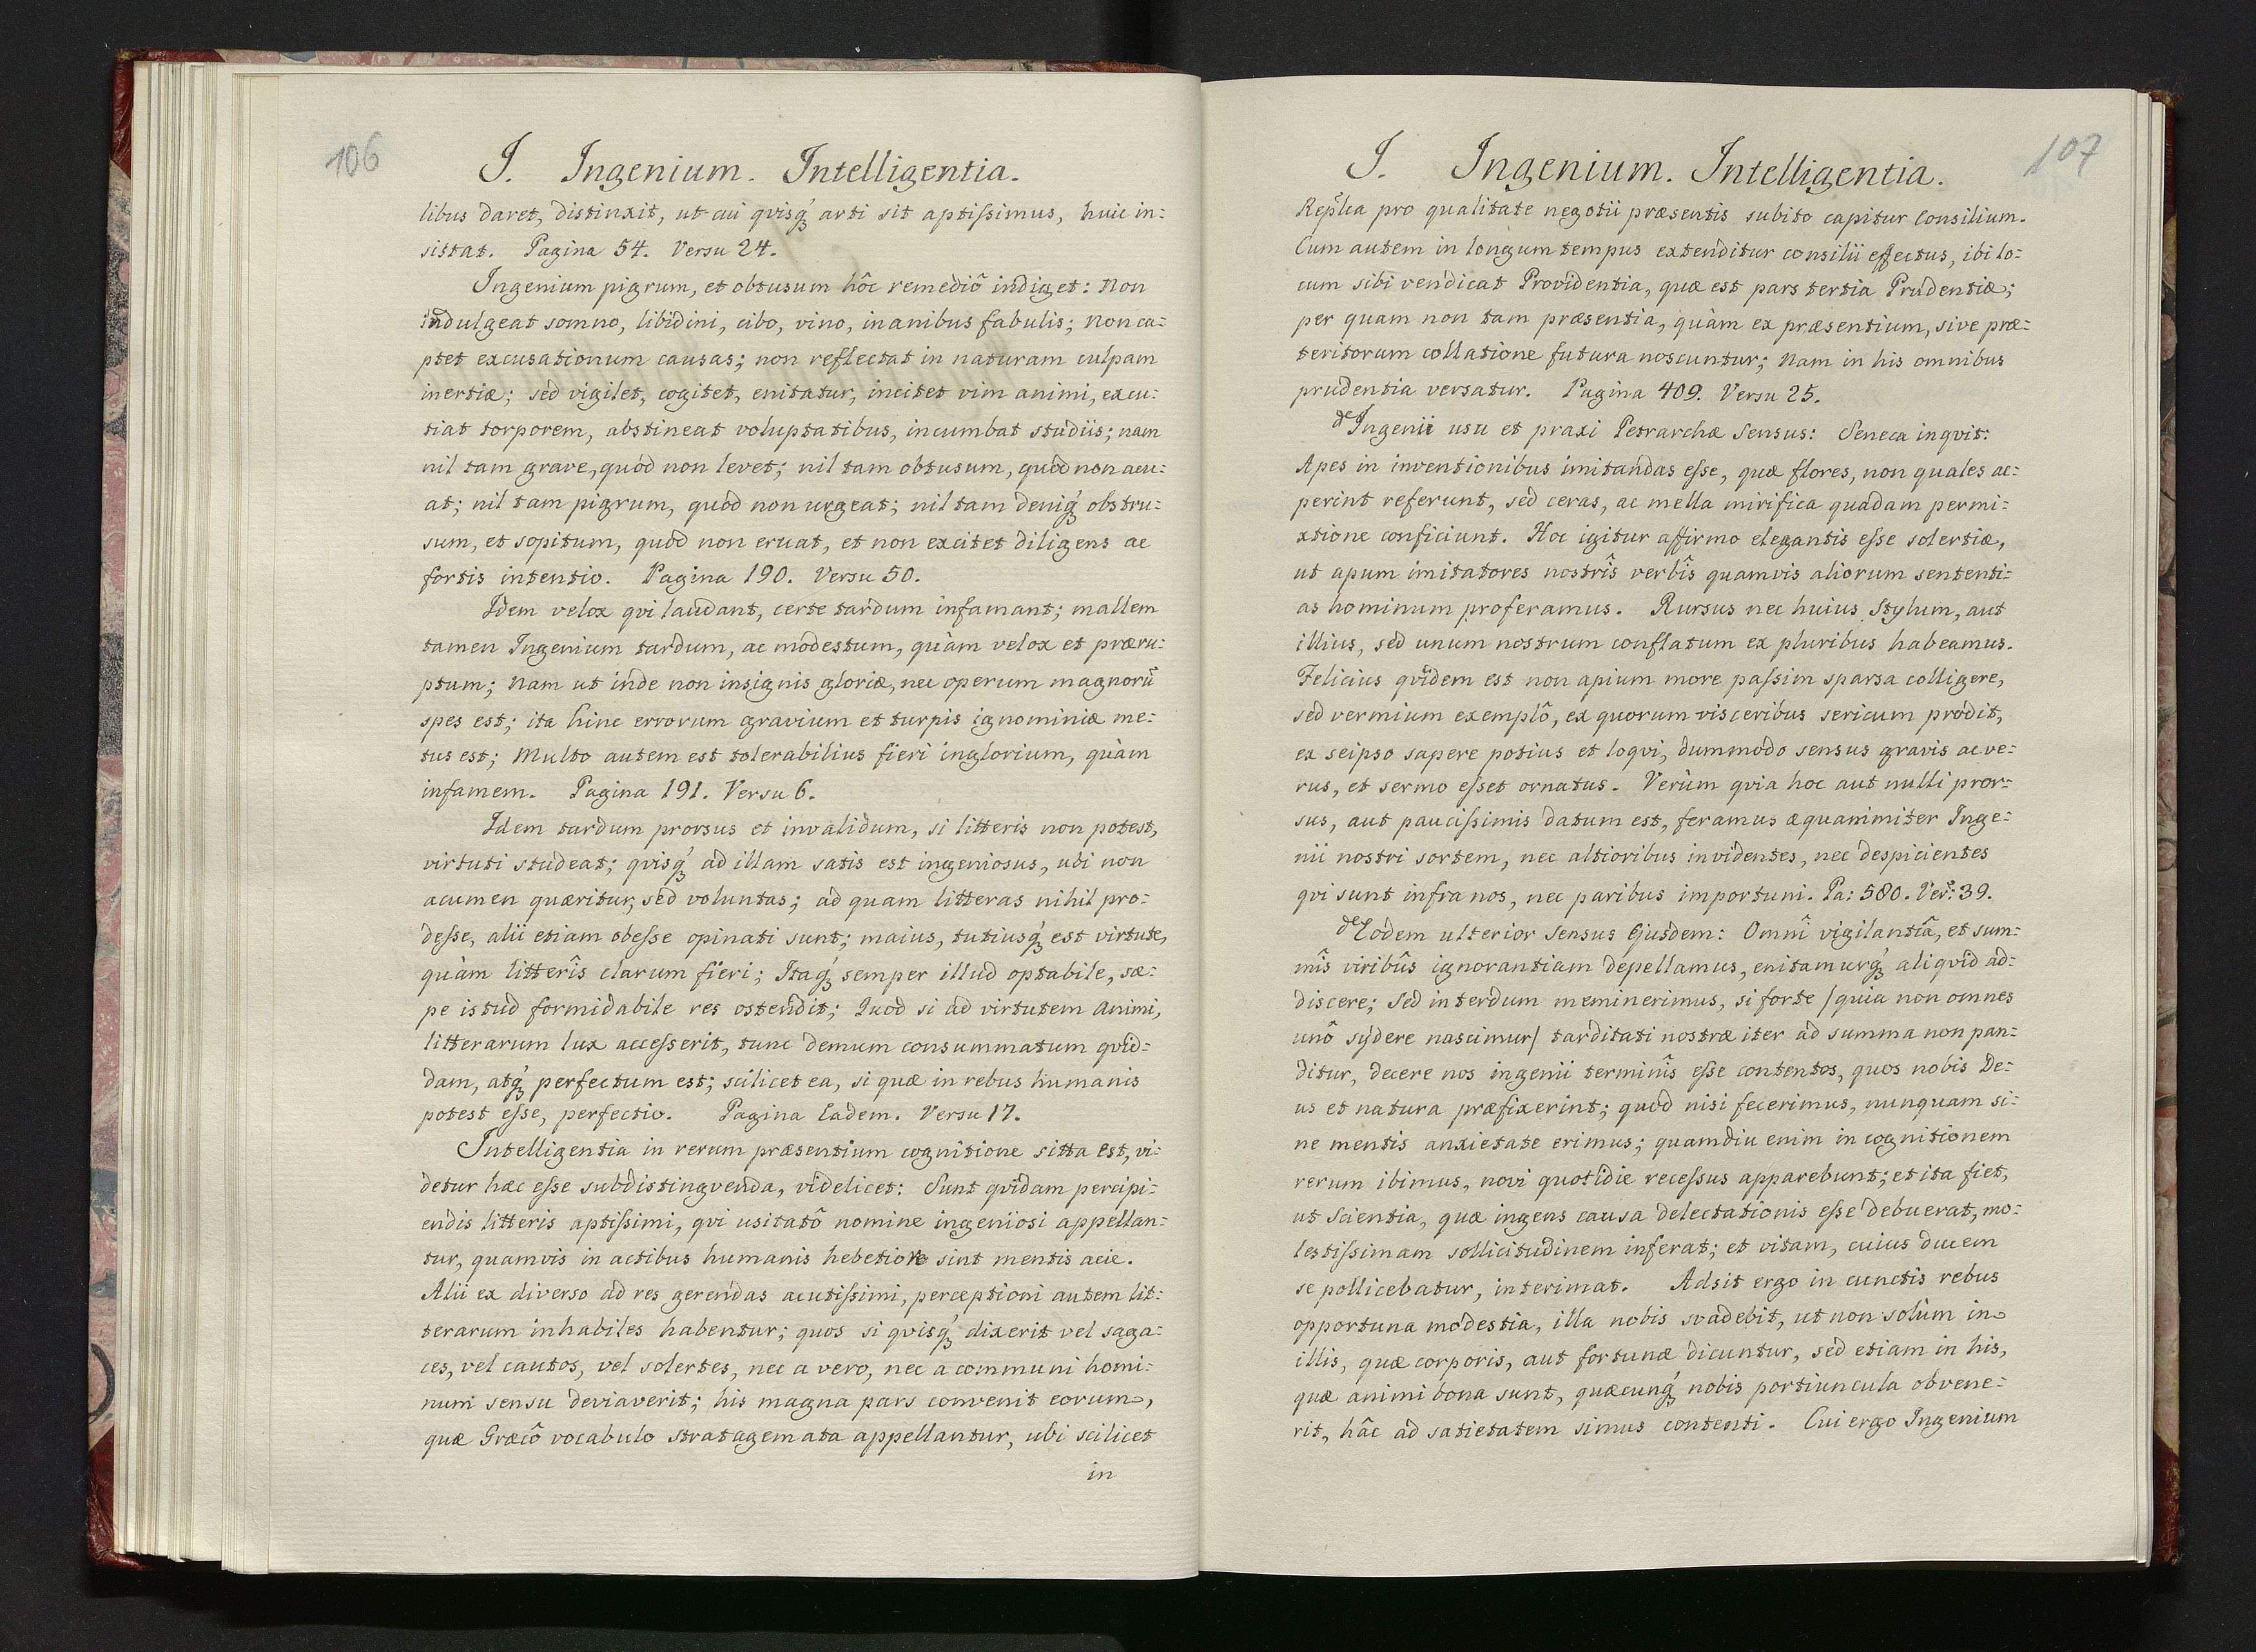 106
I. Ingenium. Intelligentia.
libus daret, distinxit, ut cui qvisq́ȝ arti sit aptiſsimus, huic in:
sistat. Pagina 54. Versu 24.
Ingenium pigrum, et obtusum hôc remediô indiget: Non
indulgeat somno, libidini, cibo, vino, inanibus fabulis; non ca:
ptet excusationum causas; non reflectat in naturam culpam
inertiæ; sed vigilet, cogitet, enitatur, incitet vim animi, excu:
tiat torporem, abstineat voluptatibus, incumbat studiis; nam
nil tam grave, quod non levet; nil tam obtusum, quod non acu:
at; nil tam pigrum, quòd non urgeat; nil tam deniq́ȝ obstru:
sum, et sopitum, quòd non eruat, et non excitet diligens ac
fortis intentio. Pagina 190. Versu 50.
Idem velox qvi laudant, certe tardum infamant; mallem
tamen Ingenium tardum, ac modestum, quàm velox et præru:
ptum; nam ut inde non insignis gloriæ, nec operum magnorũ
spes est; ita hinc errorum gravium et turpis ignominiæ me:
tus est; Multo autem est tolerabilius fieri inglorium, quàm
infamem. Pagina 191. Versu 6.
Idem tardum prorsus et invalidum, si litteris non potest,
virtuti studeat; qvisq́ȝ ad illam satis est ingeniosus, ubi non
acumen quæritur, sed voluntas; ad quam litteras nihil pro:
deſse, alii etiam obeſse opinati sunt; maius, tutiusq́ȝ est virtute,
quàm litterîs clarum fieri; Itaq́ȝ semper illud optabile, sæ:
pe istud formidabile res ostendit; Quod si ad virtutem animi,
litterarum lux acceſserit, tunc demum consummatum qvid:
dam, atq́ȝ perfectum est; scilicet ea, si quæ in rebus humanis
potest eſse, perfectio. Pagina Eadem. Versu 17.
Intelligentia in rerum præsentium cognitione sitta est, vi:
detur hæc eſse subdistingvenda, videlicet: Sunt qvidam percipi:
endis litteris aptiſsimi, qvi usitatô nomine ingeniosi appellan:
tur, quamvis in actibus humanis hebetiore sint mentis acie.
Alii ex diverso ad res gerendas acutiſsimi, perceptioni autem lit:
terarum inhabiles habentur; quos si qvisq́ȝ dixerit vel saga:
ces, vel cautos, vel solertes, nec a vero, nec a communi homi:
num sensu deviaverit; his magna pars convenit eorum,
quæ Græcô vocabulo stratagemata appellantur, ubi scilicet
in
107
I. Ingenium. Intelligentia.
Replica pro qualitate negotii præsentis subito capitur Consilium.
Cum autem in longum tempus extenditur consilii effectus, ibi lo:
cum sibi vendicat Providentia, quæ est pars tertia Prudentiæ;
per quam non tam præsentia, quàm ex præsentium, sive præ:
teritorum collatione futura noscuntur; nam in his omnibus
prudentia versatur. Pagina 409. Versu 25.
de Ingenii usu et praxi Petrarchæ Sensus: Seneca inqvit:
Apes in inventionibus imitandas eſse, quæ flores, non quales ac:
perint referunt, sed ceras, ac mella mirifica quadam permi:
xtione conficiunt. Hoc igitur affirmo elegantis eſse solertiæ,
ut apum imitatores nostrîs verbîs quamvis aliorum sententi:
as hominum proferamus. Rursus nec huius Stylum, aut
illius, sed unum nostrum conflatum ex pluribus habeamus.
Felicius qvidem est non apium more paſsim sparsa colligere,
sed vermium exemplô, ex quorum visceribus sericum prodit,
ex seipso sapere potius et loqvi, dummodo sensus gravis ac ve:
rus, et sermo eſset ornatus. Verùm qvia hoc aut nulli pror:
sus, aut pauciſsimis datum est, feramus æquanimiter Inge:
nii nostri sortem, nec altioribus invidentes, nec despicientes
qvi sunt infra nos, nec paribus importuni. Pa: 580. Ver: 39.
de Eodem ulterior Sensus Ejusdem: Omnî vigilantiâ, et sum:
mîs viribûs ignorantiam depellamus, enitamurq́ȝ aliqvid ad:
discere; Sed interdum meminerimus, si forte /quia non omnes
unô sydere nascimur/ tarditati nostræ iter ad summa non pan:
ditur, decere nos ingenii terminîs eſse contentos, quos nobis De:
us et natura præfixerint; quod nisi fecerimus, nunquam si:
ne mentis anxietate erimus; quamdiu enim in cognitionem
rerum ibimus, novi quotidie receſsus apparebunt; et ita fiet,
ut Scientia, quæ ingens causa delectationis eſse debuerat, mo:
lestiſsimam sollicitudinem inferat; et vitam, cuius ducem
se pollicebatur, interimat. Adsit ergo in cunctis rebus
opportuna modestia, illa nobis svadebit, ut non solùm in
illis, quæ corporis, aut fortunæ dicuntur, sed etiam in his,
quæ animi bona sunt, quæcunq́ȝ nobis portiuncula obvene:
rit, hâc ad satietatem simus contenti. Cui ergo Ingenium